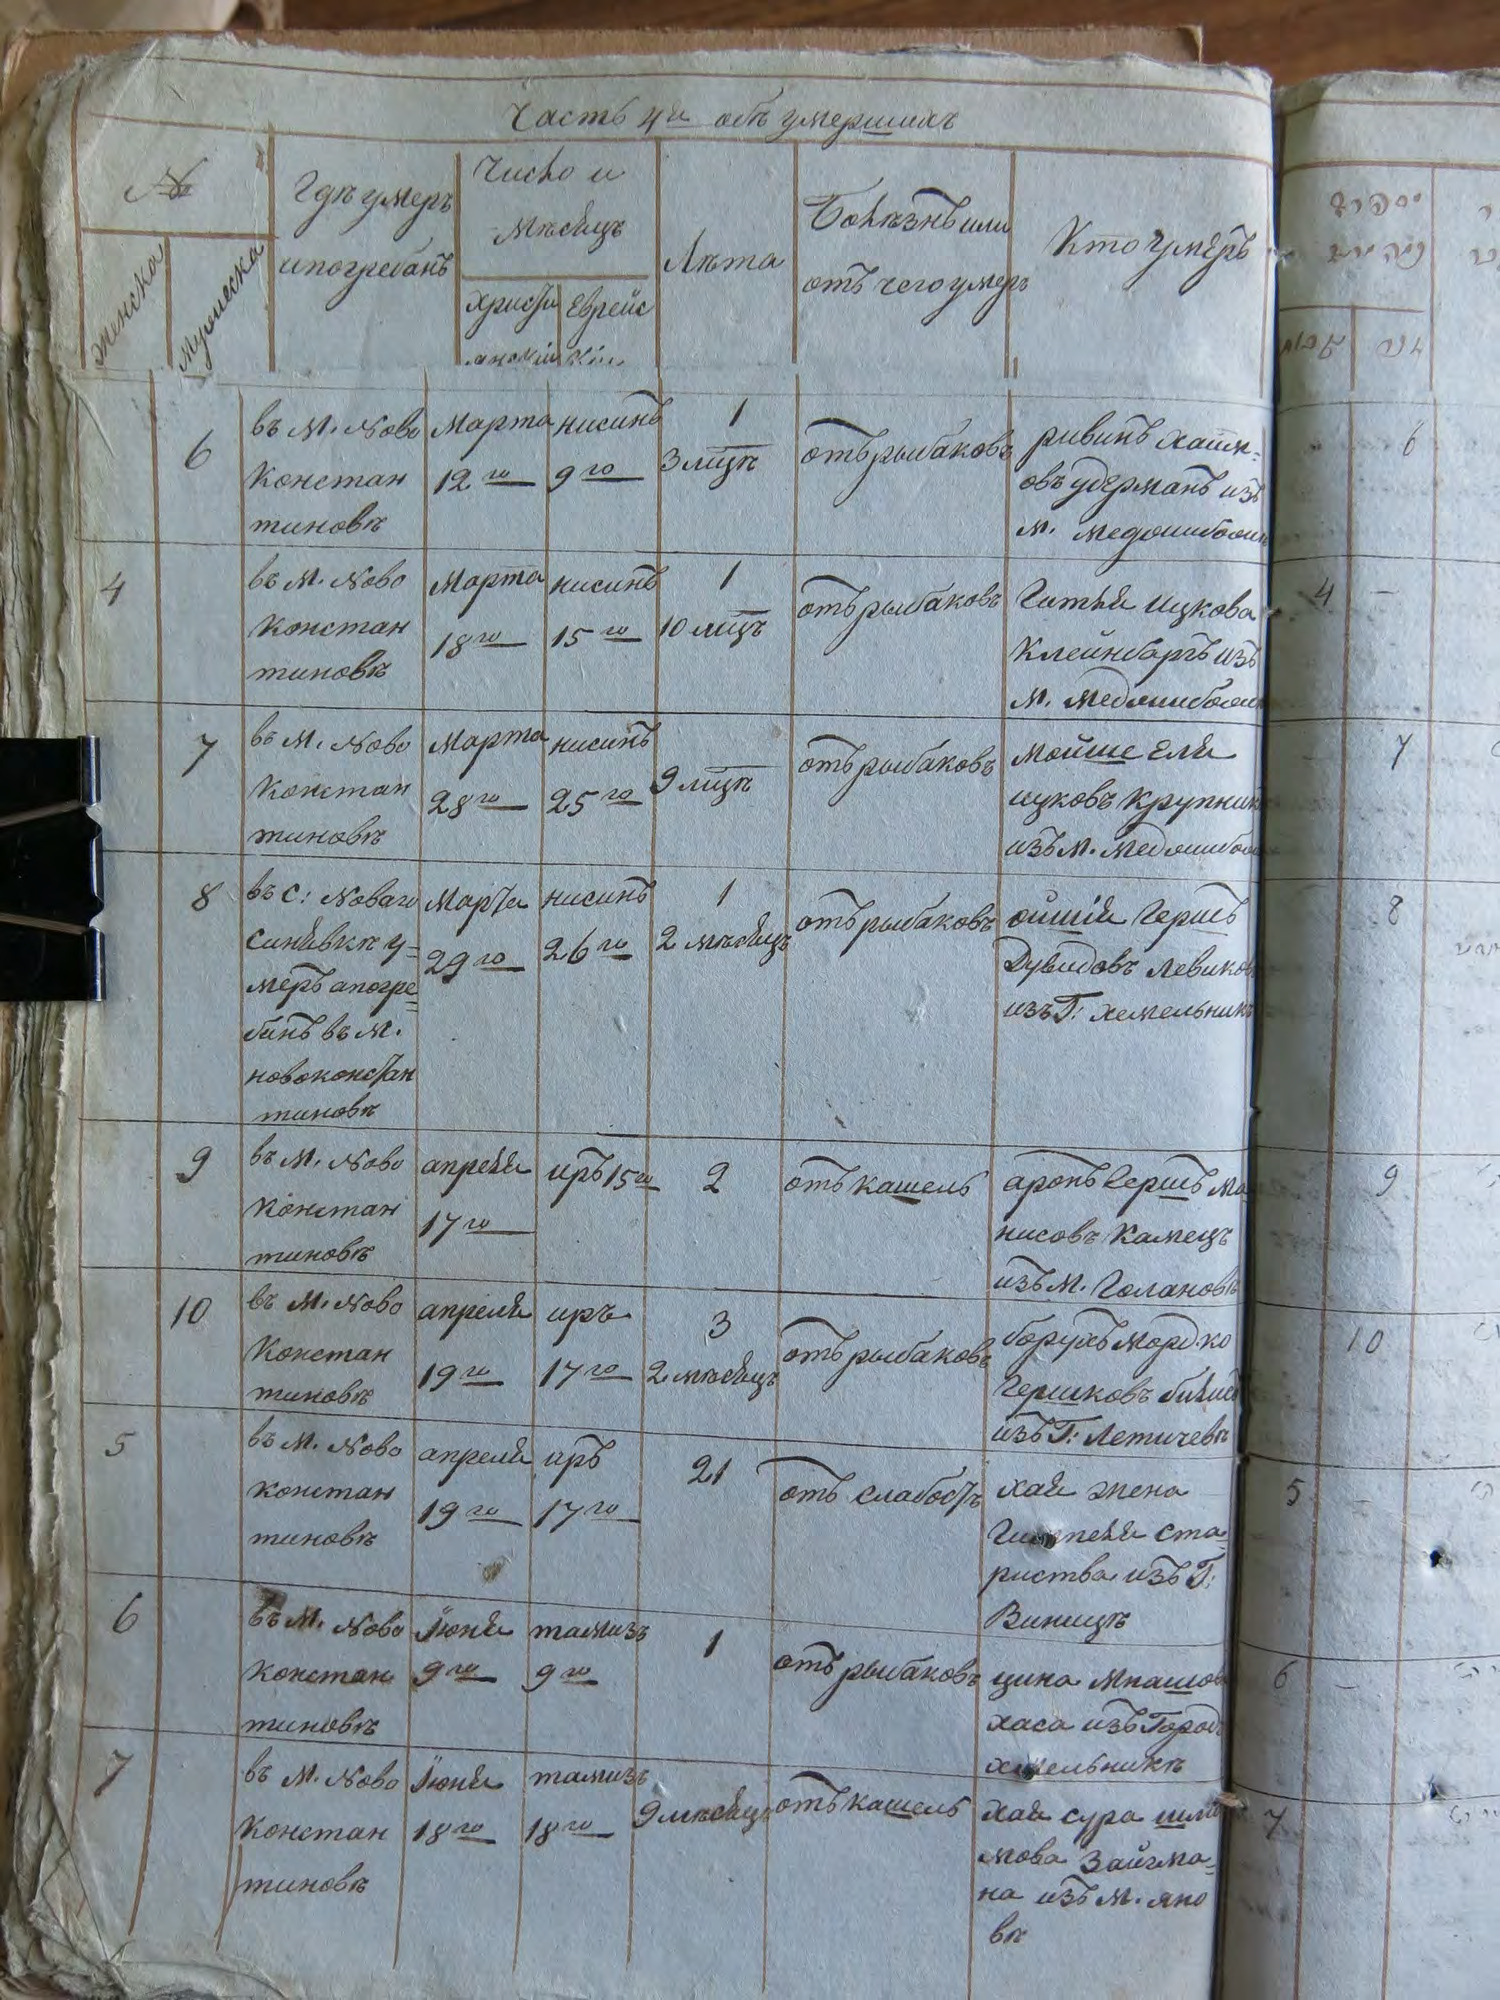 Часть 4й объ умершихъ
№
женска
мужеска
Гдѣ умеръ
и погребанъ
Число и
мѣсяцъ
христи
анскій
Еврейс
кій
Лѣта
Болѣзнь или
отъ чего умеръ
Кто умеръ
6
въ М. Ново
Констан
тиновѣ
Марта
12го
нисинъ
9го
1
3 мцѣ
отъ рыбаковъ
ривинъ хаим-
овъ удерманъ изъ
М. Медошибоши
4
въ М. Ново
Констан
тиновѣ
Марта
18го
нисинъ
15го
1
10 мцъ
отъ рыбаковъ
Гитля Ицкова
Клейнбартъ изъ
М. Медошибоши
7
въ М. Ново
Констан
тиновѣ
Марта
28го
нисинъ
25го
9 мцѣ
отъ рыбаковъ
мойше еля
ицковъ Крупник
изъ М. Медошибош
8
въ С: Новаго
Синявки у-
меръ апогре-
бинъ въ М.
новоконстан
тиновѣ
Марта
29го
нисинъ
26го
1
2 мѣсяцъ
отъ рыбаковъ
ойшія Гершъ
Дувидовъ Левиков
изъ Г: хмельникъ
9
въ М. Ново
Констан
тиновѣ
апреля
17го
иръ 15го
2
отъ кашель
аронъ Гершъ Ма
нисовъ Камецъ
изъ М. Голановъ
10
въ М. Ново
Констан
тиновѣ
апреля
19го
иръ
17го
3
2 мѣсяцъ
отъ рыбаковъ
борухъ мордко
Гершковъ
изъ Г: Летичевѣ
5
въ М. Ново
констан
тиновѣ
апреля
19го
иръ
17го
21
отъ слабостъ
хая жена
ста-
риства изъ Г:
Виницѣ
6
въ М. Ново
Констан
тиновѣ
Іюня
9го
тамизъ
9го
1
отъ рыбаковъ
цина
хаса изъ Город
хмельникѣ
7
въ М. Ново
Констан
тиновѣ
Іюня
18го
тамизъ
18го
9 мѣсяцъ
отъ кашель
хая сура шли
мова Зайчма-
на изъ М. яно
вѣ
6
4
7
8
9
10
5
6
7